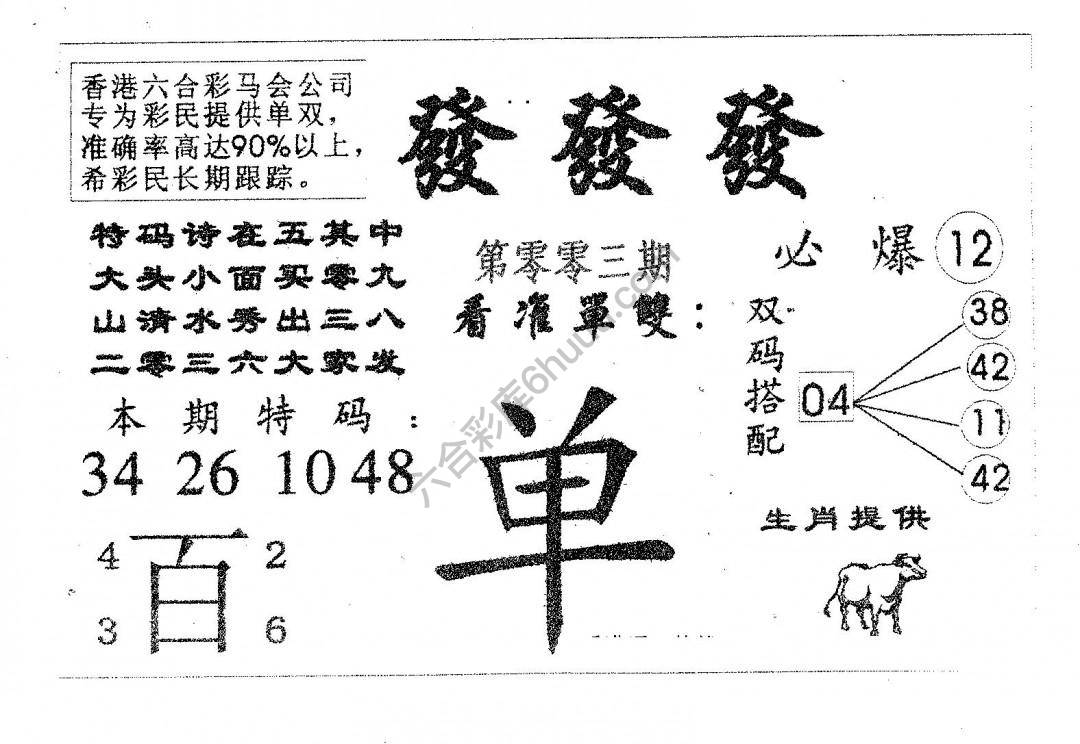 香港六合彩马会公司
专为彩民提供单双，
准确率高达90%以上，
希彩民长期跟踪。
發 發 發
特码诗在五其中
大头小面买零九
山清水秀出三八
二零三六大家发
第零零三期
看准單雙：
必爆 12
双码搭配
04
38
42
11
42
本期特码：
34 26 10 48
单
4 百 2
3 6
生肖提供
六合彩库6huck.com